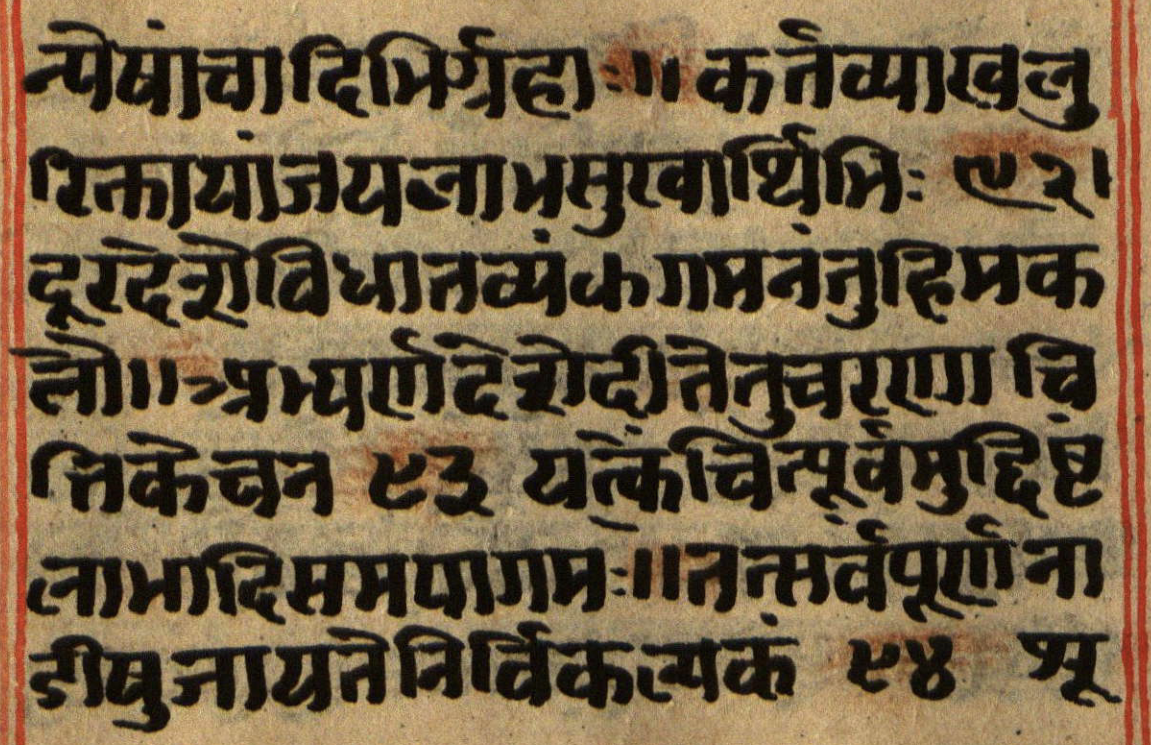 न्येषांचादिभिर्ग्रहाः॥ कर्तव्याखलु
रिक्तायांजयलाभसुखार्थिभिः ९२।
दूरदेशेविधातव्यंकगमनंतुहिमक
लौ॥अभ्यर्णदेशेदीप्तेतुचरण्णाचि
त्तिकेचन ९३ यत्किंचित्पूर्वमुद्दिष्टं
लाभादिसमयागमः॥तत्सर्वंपूर्णना
डीषुजायतेनिर्विकल्पकं ९४ श्रू